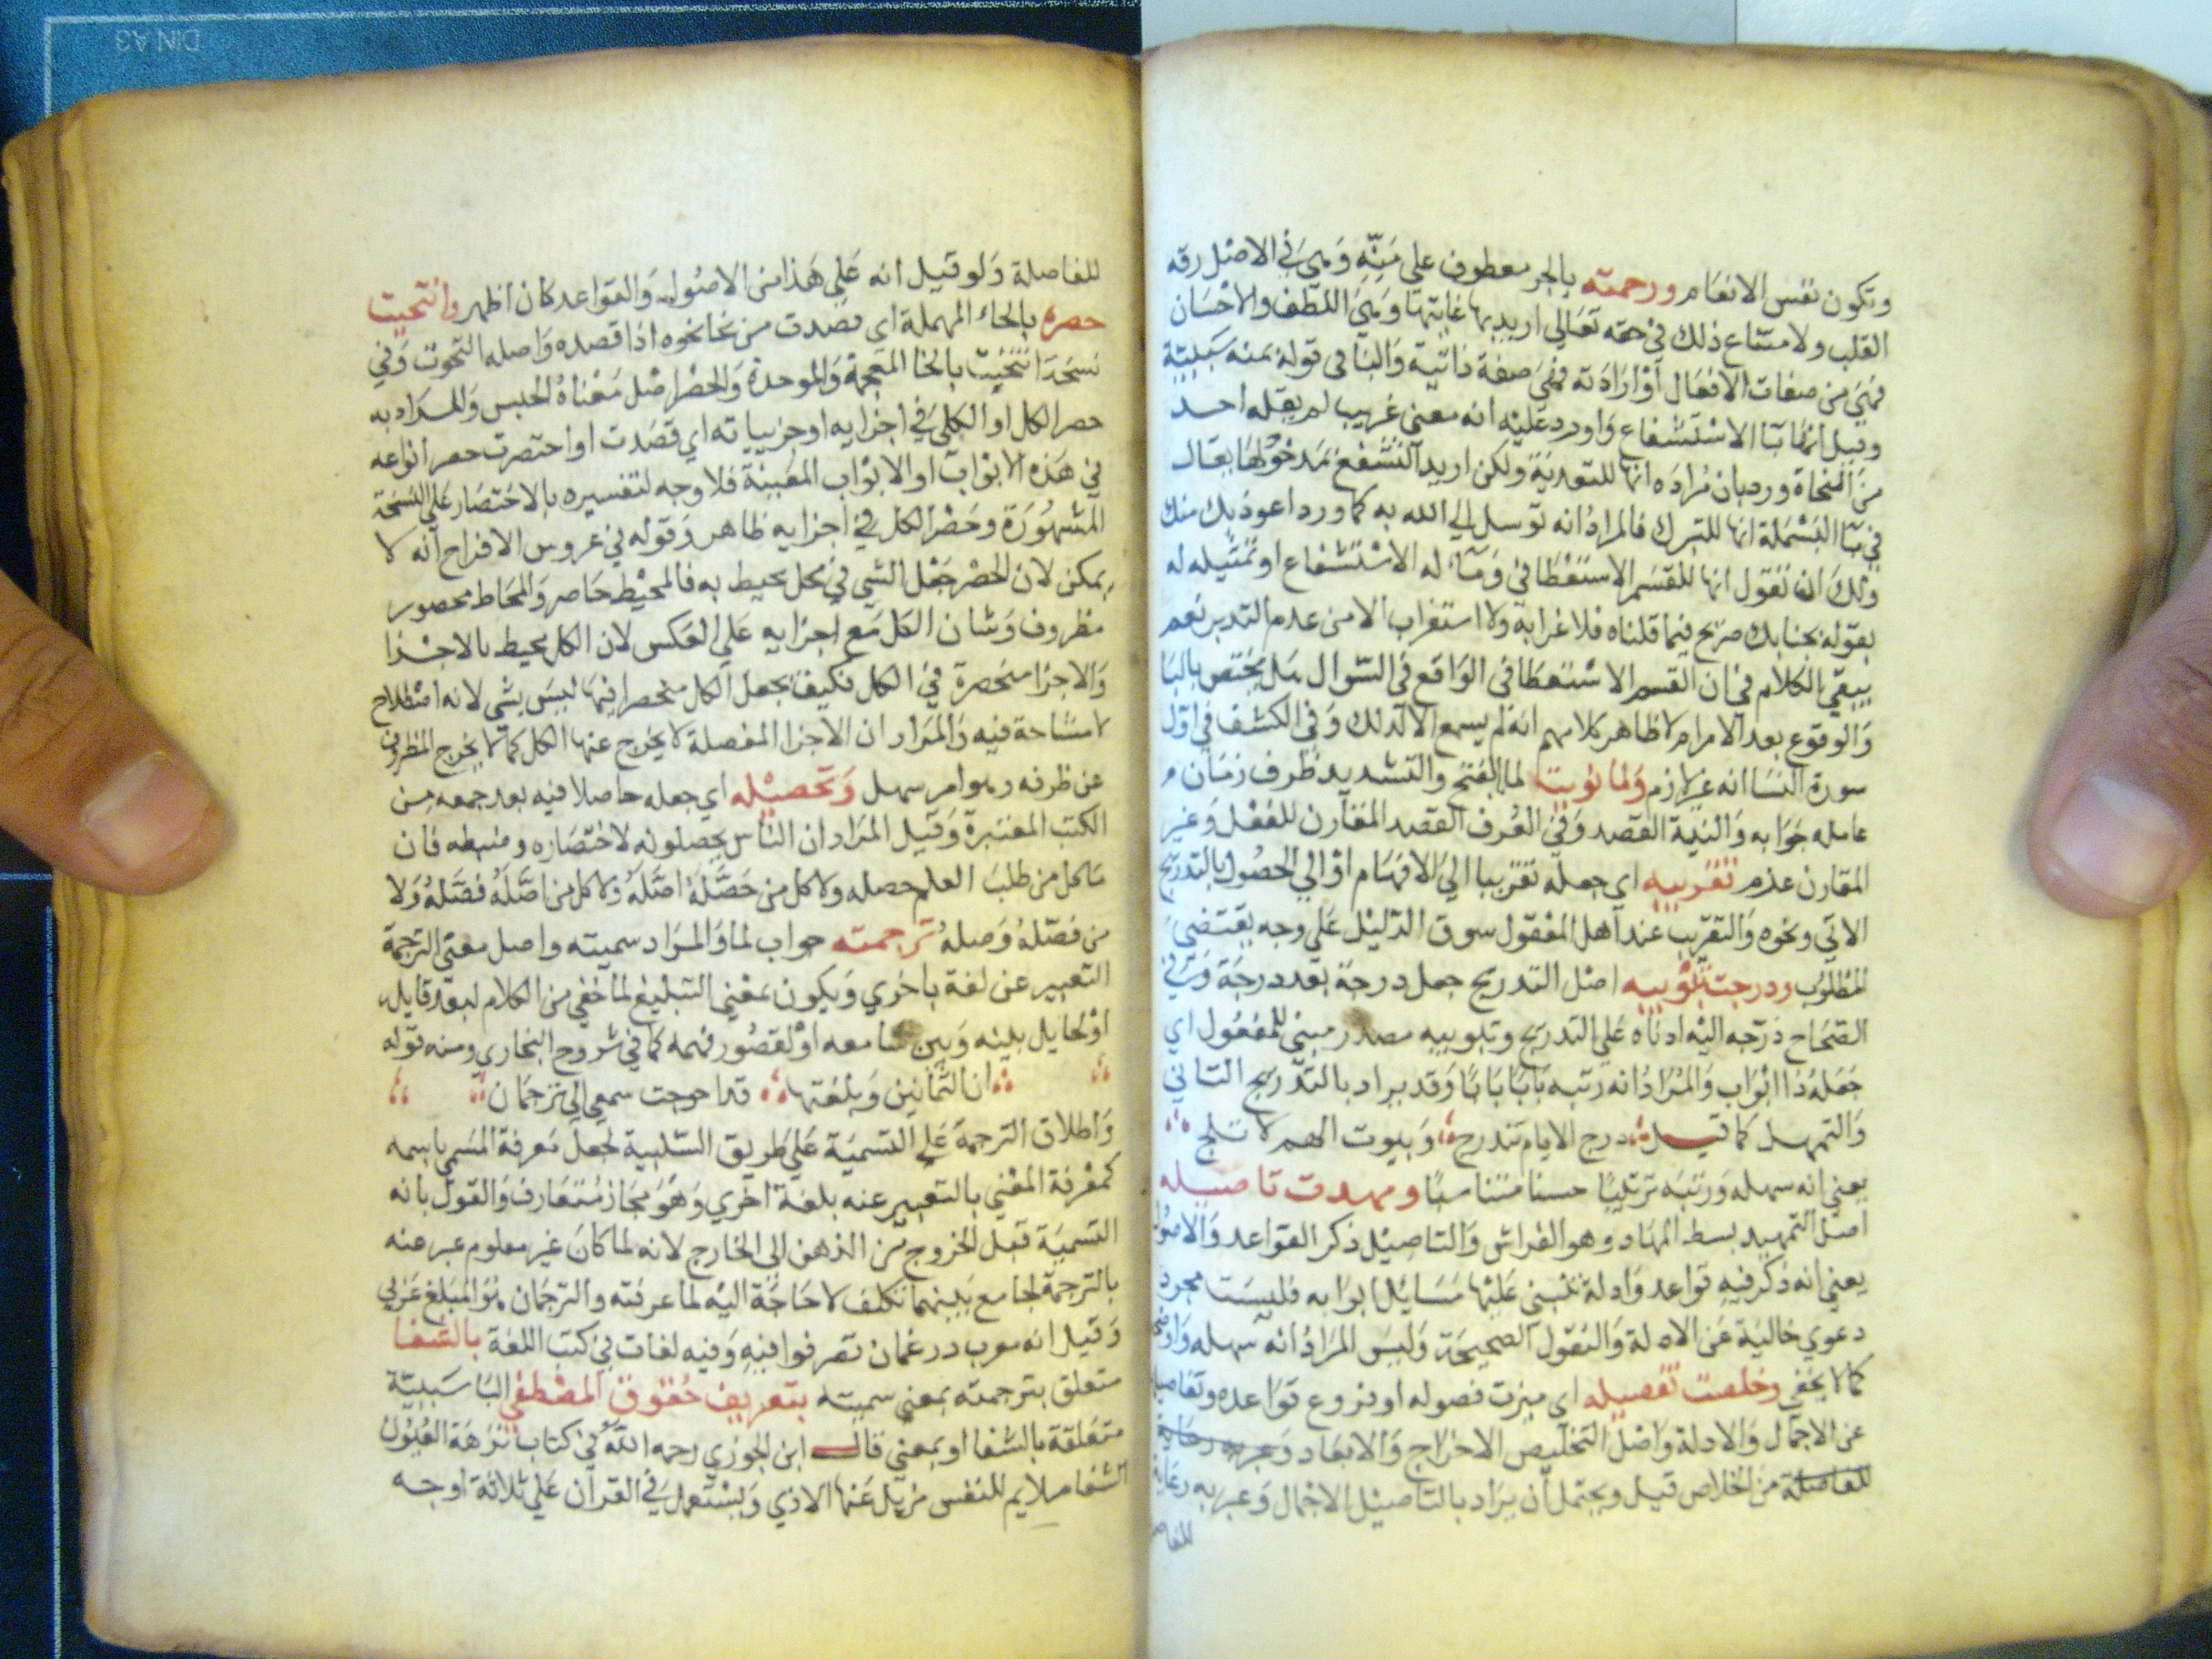 وتكون نفس الانعام ورحمته بالجر معطوف علي مَنِّهِ وَهِيَ في الاصْل رقه
القلب ولامتناع ذلك في حقه تعَالي اريد بها غايتها وَهيَ اللطف والاحْسَان
فهيَ من صفات الافعَال أوْ ارَادَته فهيَ صفة ذاتية وَالبا في قوله بمنه سَببيّة
وقيل انها بَا الاسْتشفاع وَاورد عَليْه انه معنى غريب لم يقله احد
منَ النحاة ورد بان مُرادَه انها للتعدية ولكن اريد التشفع بمدخولها كما يقال
في بَا البَسْملة انها للتبرك فالمرادُ انه توسل الي الله به كما ورد اعوذ بك منك
وَلكَ ان تقول انها للقسَم الاستعْطافي وَمآله الاسْتشفاع او تمثيله له
بقوله بجنابك صَريح فيما قلناه فلا غرابة ولا استغراب الا من عدم التدبر نعم
يبقي الكلام في ان القسم الاسْتعطافي الوَاقع في السّوال هل يَختص بالبَا
وَالوقوع بعد الامر ام لا ظاهر كلامهم انه لم يسمع الا كذلك وَفي الكشف في اوّل
سورة النسَا انه غير لازم وَلما نويت لما بالفتح والتشديد ظرف زمَان
عامله جَوَابه وَالنية القصد وَفي العُرف القصد المقارن للفعْل وَغير
المقارن عزم تقريبه اي جعله تقريبا الي الافهَام اوْ الي الحصُول بالتدريج
الاتي ونحوه وَالتقريب عند أهل المعْقول سوق الدّليْل عَلي وجه يقتضي
المطلوب ودرجت تبْويبه اصْل التدريج جعل درجة بعد درجَة وَفي
الصّحَاح دَرّجه اليْه ادنَاه عَلي التدريج وتبويبه مصدر مبني للمفعُول اي
جَعَلهُ ذا ابْوَاب وَالمُرادُ انه رتبه بَابًا بَابًا وَقد يراد بالتدريج التاني
وَالتمهل كما قيل درج الايام تندرج وَبيوت الهم لا تلج
يعني انه سهله وَرَتبَه ترْتيبًا حسنا متناسبًا ومهدت تاصيله
اصل التمهيد بسط المهَاد وهو الفراش وَالتاصيْل ذكر القواعد وَالاصُول
يعني انه ذكر فيهِ قوَاعد وَادلة تنبني عَليْهَا مَسَائل ابوَابه فليسَت مجرد
دعوي خالية عَن الادلة وَالنقول الصحيحَة وَليسَ المرَادُ انه سهله وَاوضحه
كما لا يخفي وخلصت تفصيله اي ميزت فصوله او فروع قوَاعده وتفاصيل
عن الاجمَال وَالادلة وَاصْل التخليص الاخراج وَالابعاد وَعبر به رعاية
للفاصلة من الخلاص قيل ويحتمل أن يرَاد بالتاصيْل الاجْمال وَعبر به رعَاية
للفاص
للفاصلة وَلو قيل انه عَلي هَذا من الاصُول وَالقوَاعد كان اظهر وانتحيت
حصره بالحاء المهملة اي قصدت من نحا نحوه اذا قصده وَاصله التحوت وَفي
نسخة انتخبت بالخا المعجمة وَالموحدة وَالحصْر اصْل مَعْناهُ الحبس وَالمراد به
حصر الكل او الكلي في اجزايه او جزيياته اي قصَدت او اختصرت حصر أنواعه
في هَذه الابْوَاب او الابْوَاب المعَينة فلا وجه لتفسيره بالاختصَار عَلي النسخة
المشهُورَة وحَصْر الكل في اجزايه ظاهر وَقوله في عروس الافراح أنه لا
يمكن لان الحصْر جَعْل الشي في محل يحيط به فالمحيْط حَاصر وَالمحَاط محصور
مظروف وَشان الكل مَع اجزايه عَلي العَكس لان الكل محيط بالاجْزا
وَالاجزا منحصرة في الكل فكيف يجعل الكل منحصرا فيها ليسَ بشي لانه اصْطلاح
لا مشاحة فيه وَالمرَاد ان الاجزا المفصلة لا يخرج عنها الكل كما لا يخرج المظروف
عن ظرفه وهو امر سهل وَتحصيْله اي جعله حاصلا فيه بعد جمعه من
الكتب المعتبرة وَقيل المرَاد ان الناس يحصلونه لاختصَاره وضبطه فان
مَا كل من طلبَ العلم حصله ولا كل من حَصَّلهُ اصَّلهُ وَلا كل من اصَّلهُ فَصَّلهُ وَلا
من فصّلهُ وَصلهُ ترجمته جواب لما وَالمرَاد سميته واصل معني الترجمة
التعبير عن لغة باخري وَيكون بمعْني التبليغ لما خفي من الكلام لبعد قايله
اوْ لحايل بينه وَبين سامعه اوْ لقصُور فهمه كما في شروح البخاري ومنه قوله
ان الثمانين وَبلغتها قد احوجت سمعي الي ترجمَان
وَاطلاق الترجمة عَلي التسميَة عَلي طريق التشبيه لجعل مَعرفة المسَمي باسمه
كمعْرفة المعْني بالتعبير عنه بلغة اخري وَهوَ مجَاز مُتعَارف وَالقول بانه
التسميَة قبل الخروج من الذهن الي الخارج لانه لما كان غير معلوم عبر عنه
بالترجمة لجامع بَينهما تكلف لا حَاجَة اليْه لما عرفته والترجمَان هوَ المبَلغ عَربي
وَقيل انه معرب درغمان تصرفوا فيهِ وَفيه لغات في كتب اللغة بالشفا
متعلق بترجمته بمعني سميته بتعريف حُقوق المصْطفي البَا سَببيّة
متعَلقة بالشفا او بمعني قال ابن الجوزي رحمه اللهُ في كتاب نزهَة العُيُون
الشفا ملايم للنفس مزيل عَنها الاذي وَيسْتعمل في القرآن عَلي ثلاثة اوجه